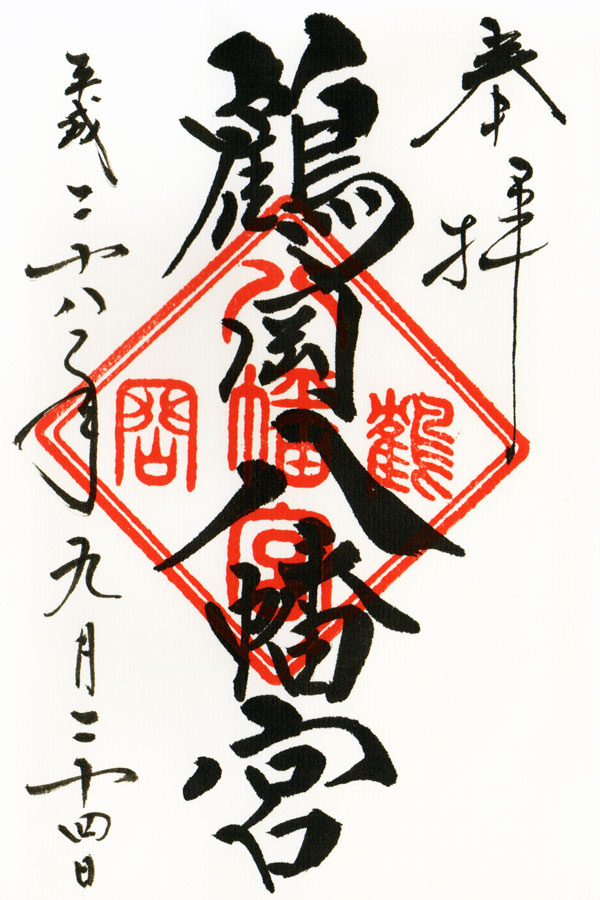 奉拝
鶴岡八幡宮
鶴
八幡宮
岡
平成二十八年九月二十四日